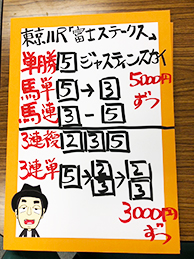 東京11R「富士ステークス」
単勝 5 ジャスティンスカイ
馬単 5→3 5000円
馬連 3-5 ずつ
3連複 2 3 5
3連単 5→2/3→2/3
3000円
ずつ